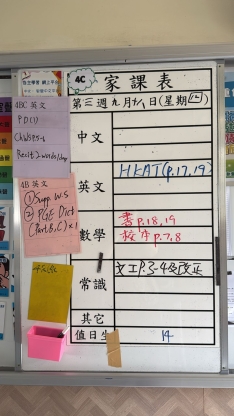 4C
家課表
第三週九月十八日(星期四)
4BC 英文
PDCU
中文
英文
HKAT (p.17,19)
4B 英文
① Supp. W.S
② PGE Dict
(Part B, C) × 1
數學
書 p.18, 19
校作 p.7, 8
常識
文工 P.3-4 及改正
其它
值日生
14